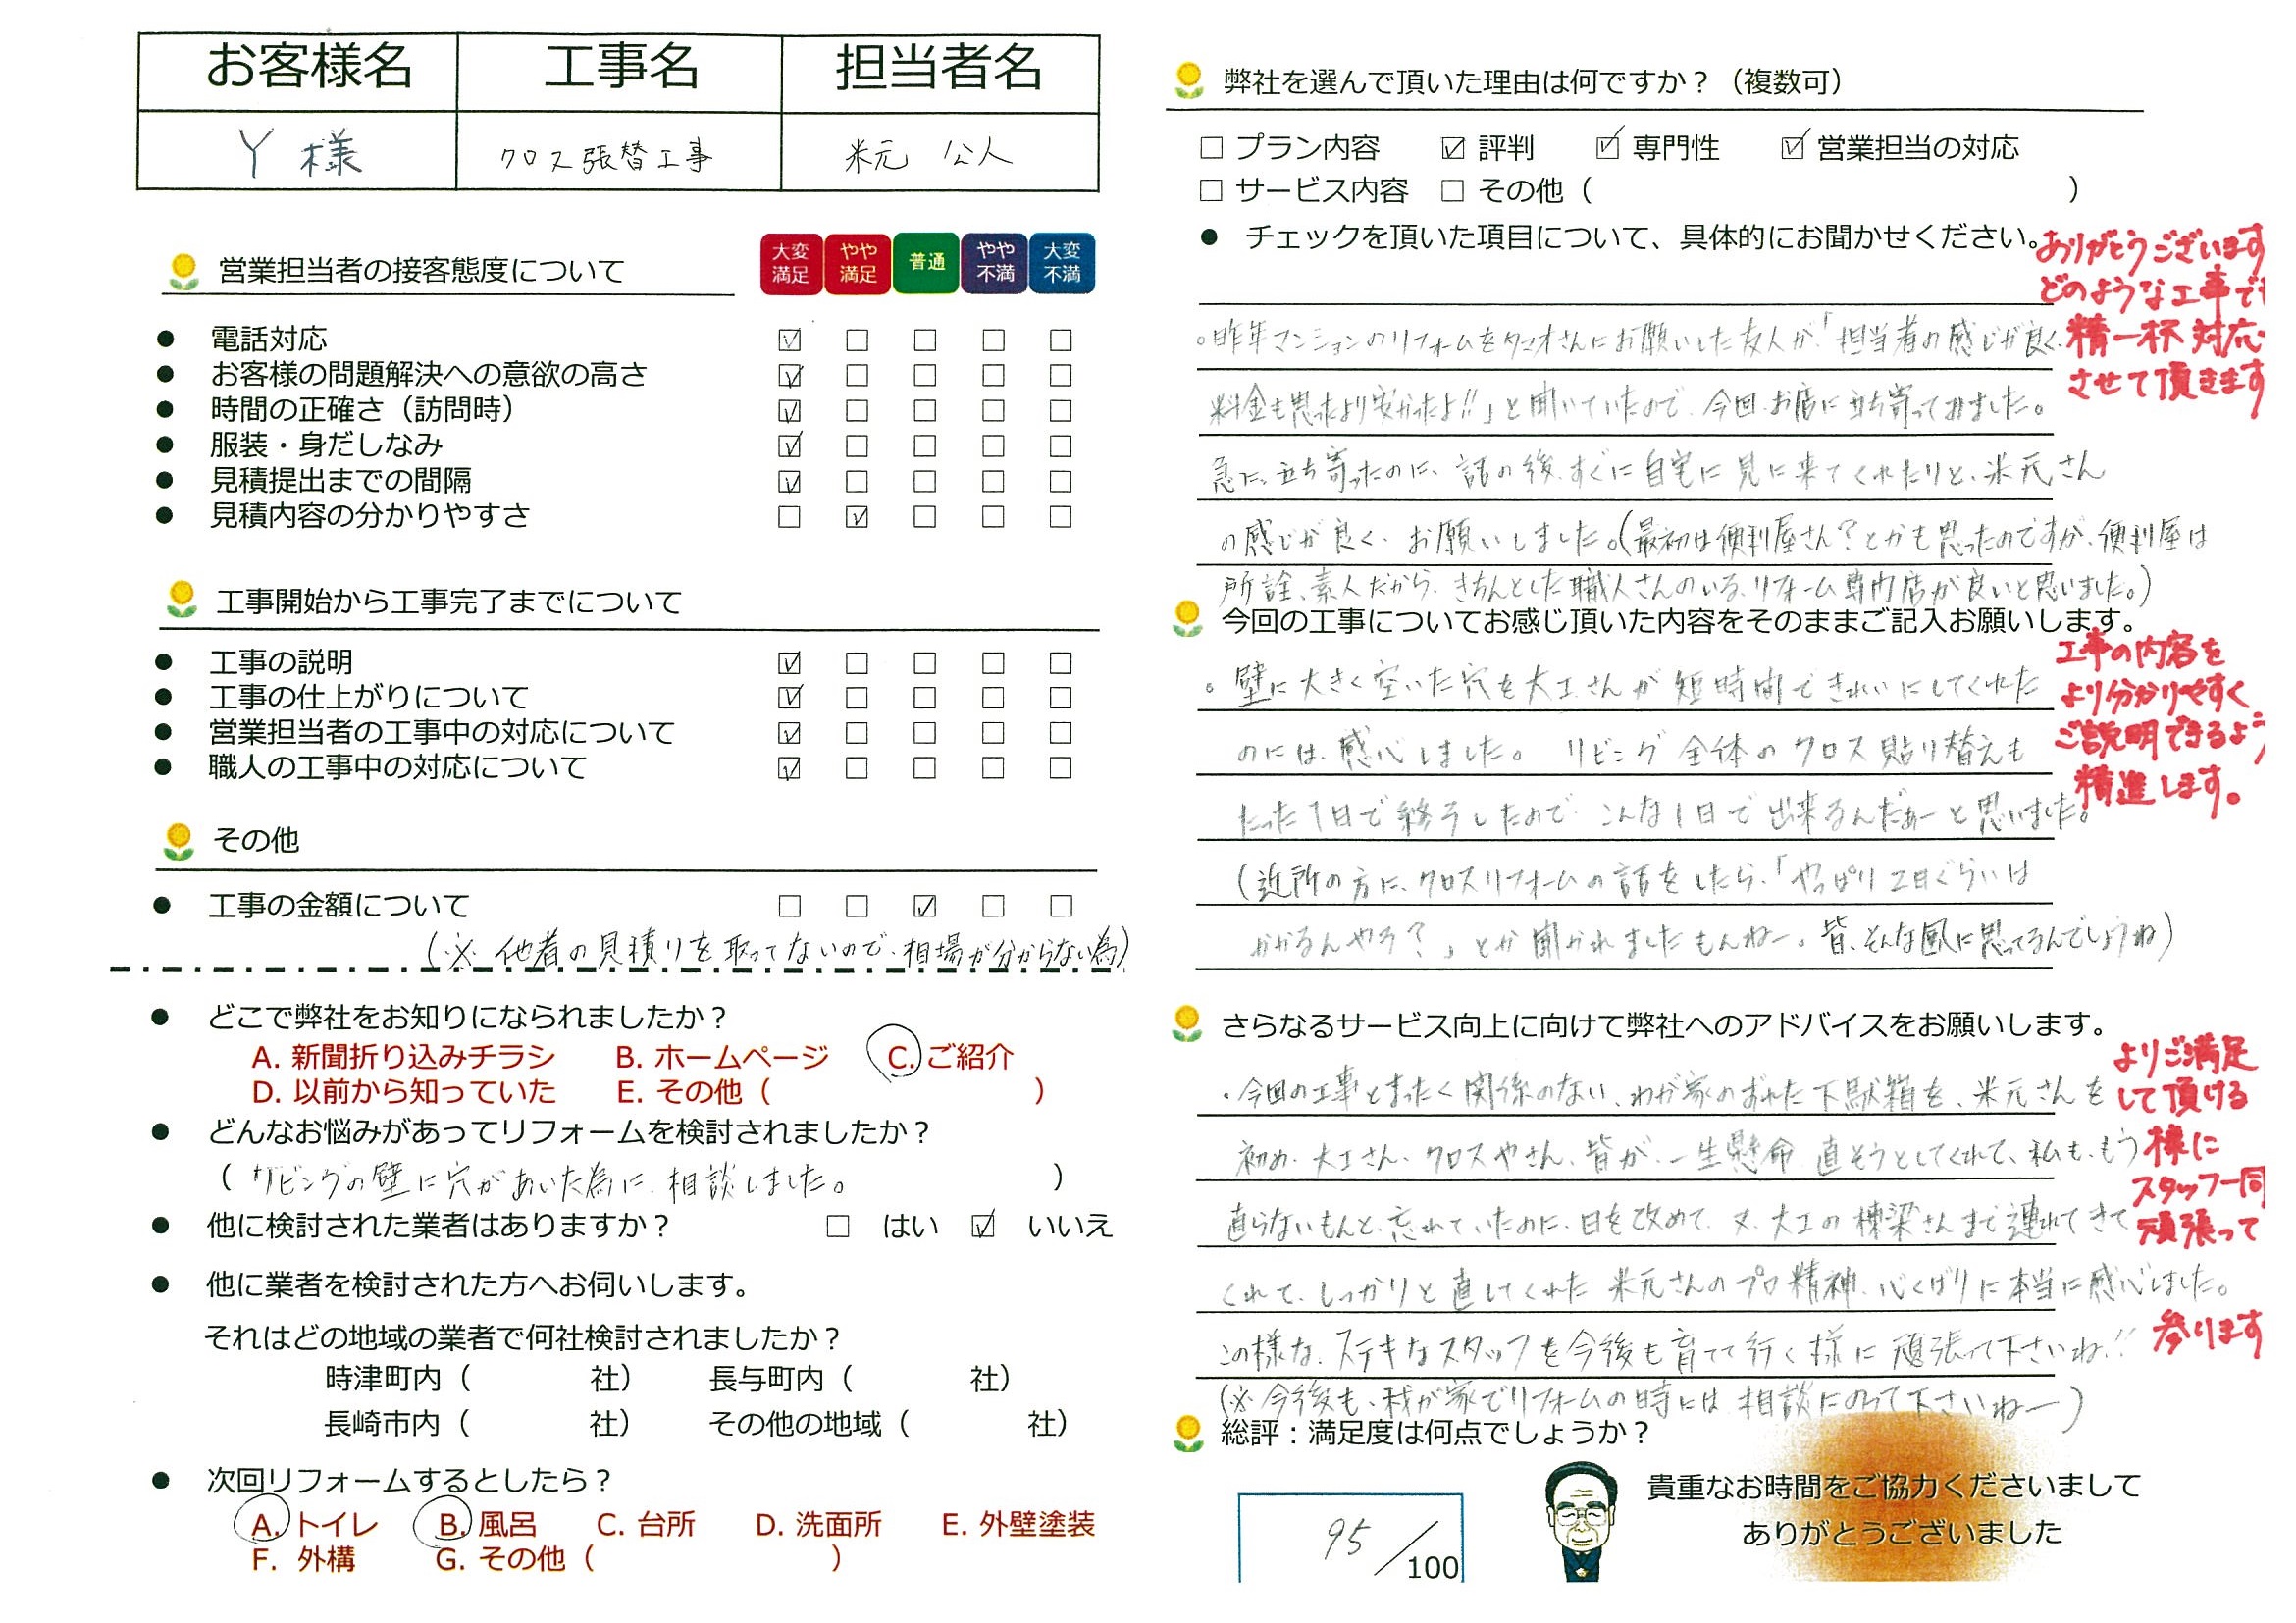 お客様名 工事名 担当者名
Y様 クロス張替工事 米元 公人
営業担当者の接客態度について
大変満足 やや満足 普通 やや不満 大変不満
● 電話対応 ☑ □ □ □ □
● お客様の問題解決への意欲の高さ ☑ □ □ □ □
● 時間の正確さ（訪問時） ☑ □ □ □ □
● 服装・身だしなみ ☑ □ □ □ □
● 見積提出までの間隔 ☑ □ □ □ □
● 見積内容の分かりやすさ □ ☑ □ □ □
工事開始から工事完了までについて
● 工事の説明 ☑ □ □ □ □
● 工事の仕上がりについて ☑ □ □ □ □
● 営業担当者の工事中の対応について ☑ □ □ □ □
● 職人の工事中の対応について ☑ □ □ □ □
その他
● 工事の金額について □ □ ☑ □ □
(※ 他者の見積りを取ってないので、相場が分からない為)
● どこで弊社をお知りになられましたか？
A. 新聞折り込みチラシ B. ホームページ C. ご紹介
D. 以前から知っていた E. その他（ ）
● どんなお悩みがあってリフォームを検討されましたか？
（ リビングの壁に穴があいた為に、相談しました。 ）
● 他に検討された業者はありますか？ □ はい ☑ いいえ
● 他に業者を検討された方へお伺いします。
それはどの地域の業者で何社検討されましたか？
時津町内（ 社） 長与町内（ 社）
長崎市内（ 社） その他の地域（ 社）
● 次回リフォームするとしたら？
A. トイレ B. 風呂 C. 台所 D. 洗面所 E. 外壁塗装
F. 外構 G. その他（ ）
弊社を選んで頂いた理由は何ですか？（複数可）
□ プラン内容 ☑ 評判 ☑ 専門性 ☑ 営業担当の対応
□ サービス内容 □ その他（ ）
● チェックを頂いた項目について、具体的にお聞かせください。
ありがとうございます
どのような工事で
精一杯対応
させて頂きます
。昨年マンションのリフォームをタマオさんにお願いした友人が、「担当者の感じが良く、
料金も思ったより安かったよ!!」と聞いていたので、今回、お店に立ち寄ってみました。
急に、立ち寄ったのに、話の後、すぐに自宅に見に来てくれたりと、米元さん
の感じが良く、お願いしました。(最初は便利屋さん？とかも思ったのですが、便利屋は
所詮、素人だから、きちんとした職人さんのいる、リフォーム専門店が良いと思いました。)
今回の工事についてお感じ頂いた内容をそのままご記入お願いします。
工事の内容を
より分かりやすく
ご説明できるよう
精進します。
。壁に大きく空いた穴を大工さんが短時間できれいにしてくれた
のには、感心しました。 リビング全体のクロス貼り替えも
たった1日で終了したので、こんな1日で出来るんだぁーと思いました。
(近所の方に、クロスリフォームの話をしたら、「やっぱり2日ぐらいは
かかるんやろ？」とか聞かれましたもんねー。皆、そんな風に思ってるんでしょうね)
さらなるサービス向上に向けて弊社へのアドバイスをお願いします。
よりご満足
して頂ける
様に
スタッフ一同
頑張って
参ります
・今回の工事とまったく関係のない、わが家のずれた下駄箱を、米元さんを
初め、大工さん、クロスやさん、皆が、一生懸命 直そうとしてくれて、私も、もう
直らないもんと、忘れていたのに、日を改めて、又、大工の棟梁さんまで連れてきて
くれて、しっかりと直してくれた 米元さんのプロ精神、心くばりに本当に感心しました。
この様な、ステキなスタッフを今後も育てて行く様に頑張って下さいね!!
(※今後も、我が家でリフォームの時には相談にのって下さいねー)
総評：満足度は何点でしょうか？
95／100
貴重なお時間をご協力くださいまして
ありがとうございました